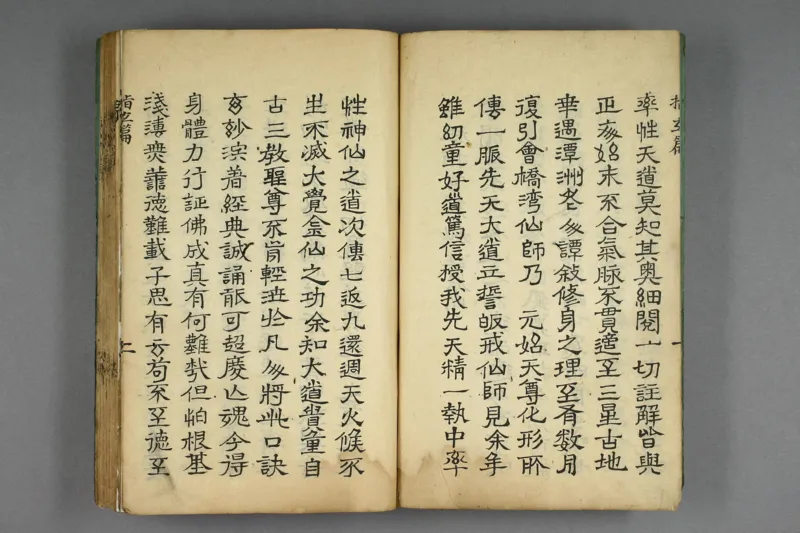 指玄篇
一
率性天道莫知其奥細閱一切註解皆與
正玄始末不合氣脉不貫適至三星古地
幸遇潭洲老人譚敍修身之理至有数月
復引會橋湾仙師乃 元始天尊化形所
傳一脈先天大道立誓皈戒仙師見余年
雖幼童好道篤信授我先天精一執中率
性神仙之道次傳七返九還週天火候不
生不滅大覺金仙之功余知大道貴重自
古三教聖尊不肯輕泄於凡人將此口訣
玄妙深着經典誠誦能可超度亡魂今得
身體力行証佛成真有何難哉但怕根基
淺薄德難載子思有云苟不至德至
指玄篇
二